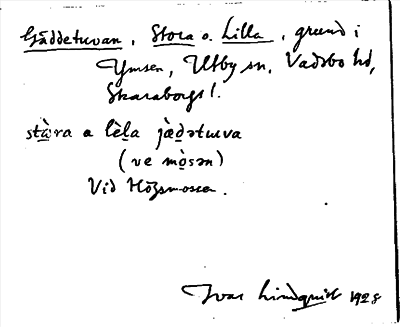 Gäddetuvan, Stora o. Lilla, grund i
Ymsen, Utby sn, Vadsbo hd,
Skaraborgs l.
stàra a lèla jàdətuva
(ve mòsən)
Vid Högsmossen.
Ivar Lindquist 1928